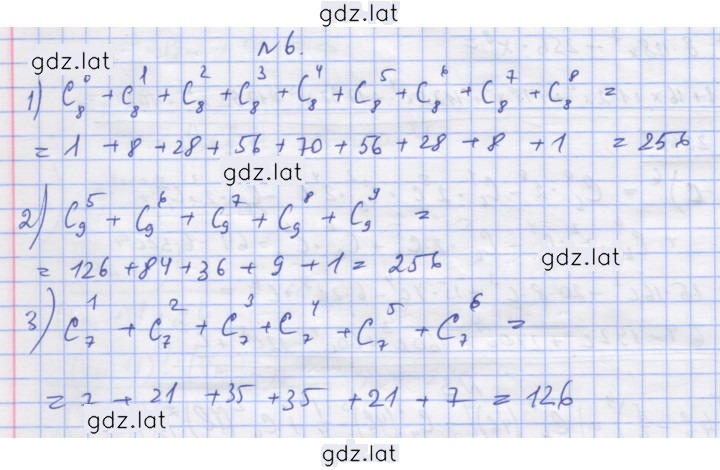 gdz.lat
№6.
gdz.lat
1) C₈⁰ + C₈¹ + C₈² + C₈³ + C₈⁴ + C₈⁵ + C₈⁶ + C₈⁷ + C₈⁸ =
= 1 + 8 + 28 + 56 + 70 + 56 + 28 + 8 + 1 = 256
gdz.lat
2) C₉⁵ + C₉⁶ + C₉⁷ + C₉⁸ + C₉⁹ =
= 126 + 84 + 36 + 9 + 1 = 256
gdz.lat
3) C₇¹ + C₇² + C₇³ + C₇⁴ + C₇⁵ + C₇⁶ =
= 7 + 21 + 35 + 35 + 21 + 7 = 126
gdz.lat
gdz.lat